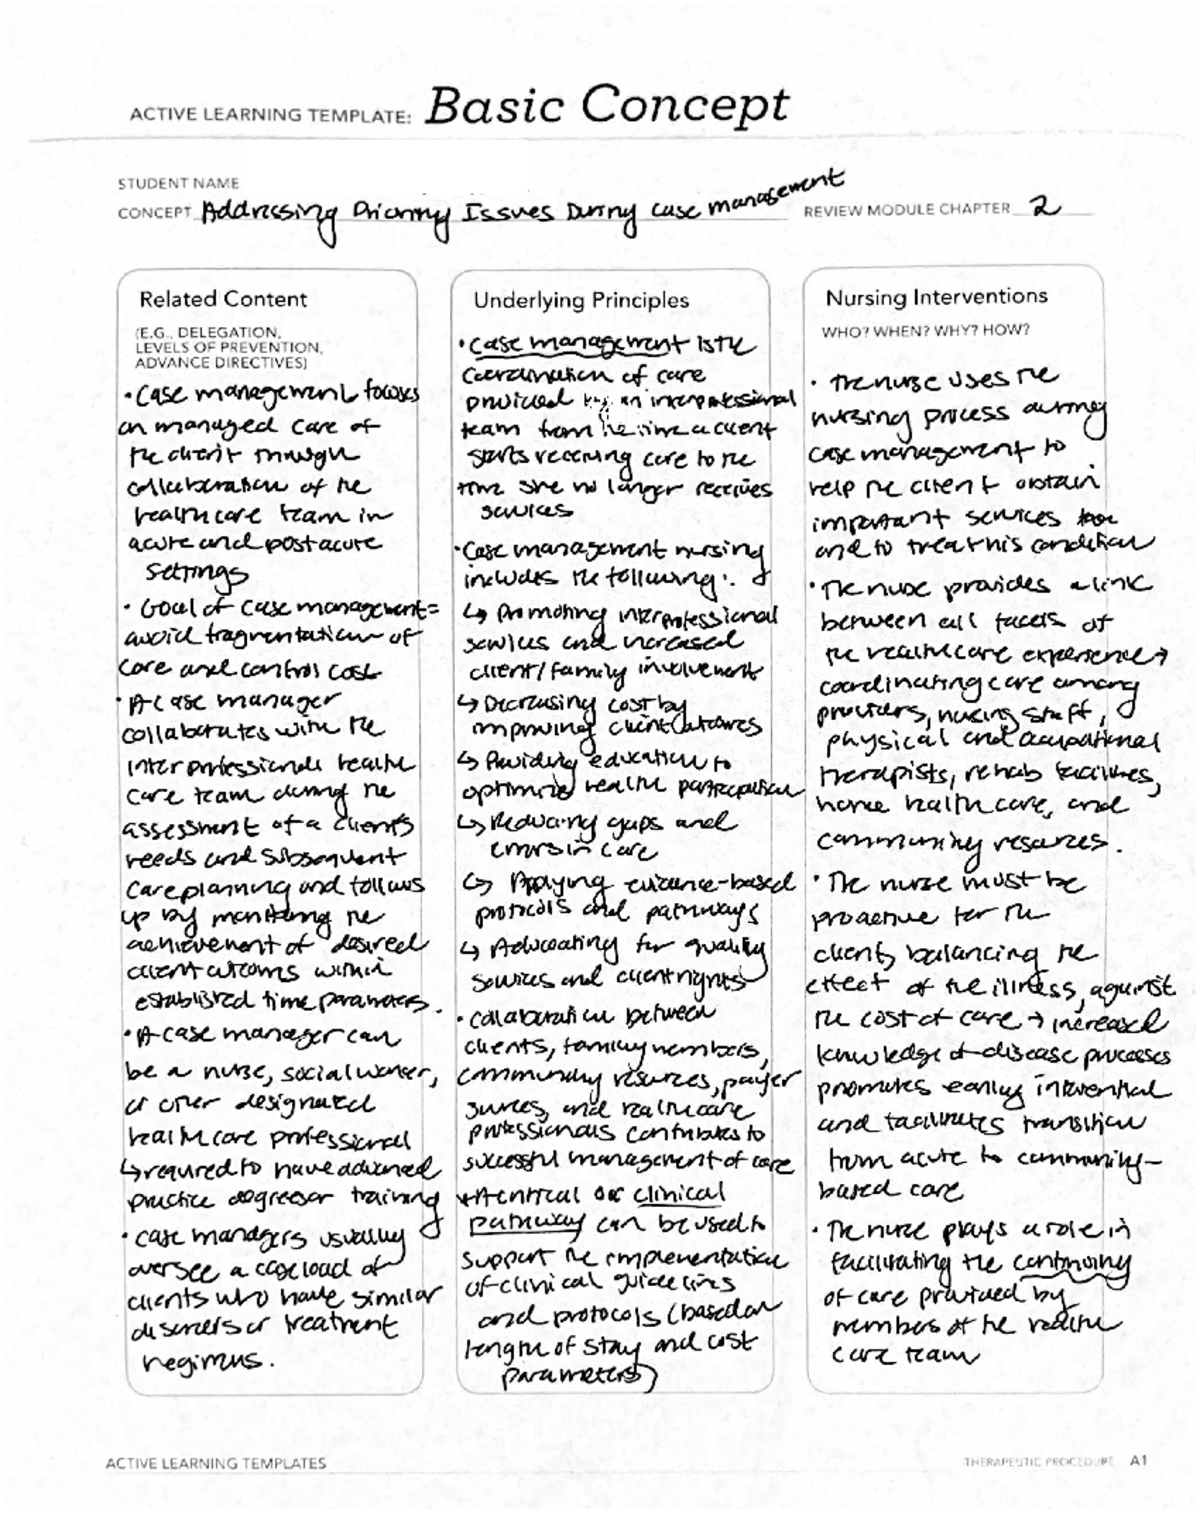 ACTIVE LEARNING TEMPLATE: Basic Concept
STUDENT NAME
CONCEPT Addressing Priority Issues During Case management
REVIEW MODULE CHAPTER 2
Related Content
(E.G., DELEGATION,
LEVELS OF PREVENTION,
ADVANCE DIRECTIVES)
• Case management focuses
on managed care of
the client through
collaboration of the
health care team in
acute and post acute
settings
• Goal of case management =
avoid fragmentation of
care and control cost
• A case manager
collaborates with the
interprofessional health
care team during the
assessment of a client's
needs and subsequent
care planning and follows
up by monitoring the
achievement of desired
client outcomes within
established time parameters.
• A case manager can
be a nurse, social worker,
or other designated
health care professional
↳ required to have advanced
practice degrees or training
• case managers usually
oversee a caseload of
clients who have similar
disorders or treatment
regimens.
Underlying Principles
• Case management is the
coordination of care
provided by an interprofessional
team from the time a client
starts receiving care to the
time she no longer receives
services
• Case management nursing
includes the following:
↳ Promoting interprofessional
services and increased
client/family involvement
↳ Decreasing cost by
improving client outcomes
↳ Providing education to
optimize health participation
↳ Reducing gaps and
errors in care
↳ Applying evidence-based
protocols and pathways
↳ Advocating for quality
services and client rights
• collaboration between
clients, family members,
community resources, payer
sources, and health care
professionals contributes to
successful management of care
* A critical or clinical
pathway can be used to
support the implementation
of clinical guidelines
and protocols (based on
length of stay and cost
parameters)
Nursing Interventions
WHO? WHEN? WHY? HOW?
• The nurse uses the
nursing process during
case management to
help the client obtain
important services
and to treat his condition
• The nurse provides a link
between all facets of
the health care experience →
coordinating care among
providers, nursing staff,
physical and occupational
therapists, rehab facilities,
home health care, and
community resources.
• The nurse must be
proactive for the
client, balancing the
effect of the illness, against
the cost of care → increased
knowledge of disease processes
promotes earlier intervention
and facilitates transition
from acute to community-
based care
• The nurse plays a role in
facilitating the continuity
of care provided by
members of the health
care team
ACTIVE LEARNING TEMPLATES
THERAPEUTIC PROCEDURE A1